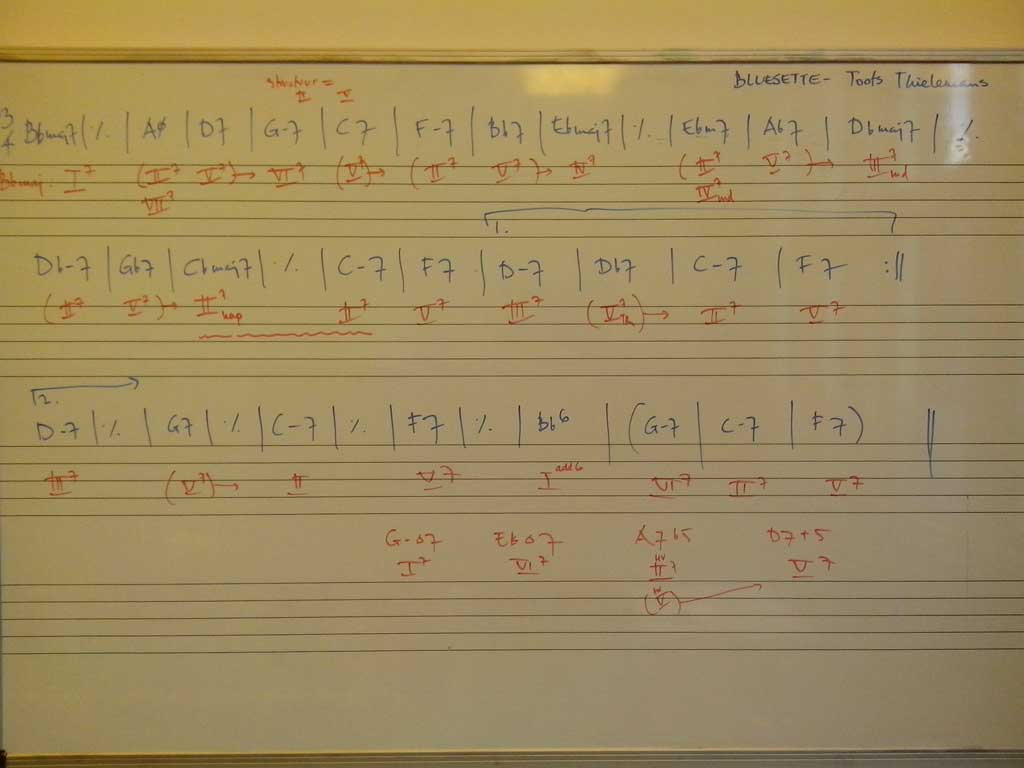 BLUESETTE - Toots Thielemans
structuur =
II V
3/4 Bbmaj7 | ٪ | Aø | D7 | G-7 | C7 | F-7 | Bb7 | Ebmaj7 | ٪ | Ebm7 | Ab7 | Dbmaj7 | ٪
Bbmaj: I7 (II7 V7)→ VI7 (V7)→ (II7 V7)→ IV7 (II7 V7)→ III7 md
VII7 IV7 md
1.
Db-7 | Gb7 | Cbmaj7 | ٪ | C-7 | F7 | D-7 | Db7 | C-7 | F7 :||
(II7 V7)→ II7 nap II7 V7 III7 (V7)→ II7 V7
2.
D-7 | ٪ | G7 | ٪ | C-7 | ٪ | F7 | ٪ | Bb6 | (G-7 | C-7 | F7) ||
III7 (V7)→ II V7 I add6 VI7 II7 V7
G-Δ7 EbΔ7 A7b5 D7+5
I7 VI7 II7 V7
(V)→